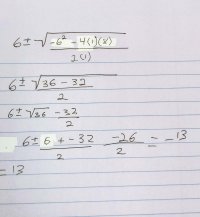 6 ± √-6² - 4(1)(8)
2(1)
6 ± √36 - 32
2
6 ± √36 - 32
2
6 ± 6 + -32 -26 = -13
2 2
= 13